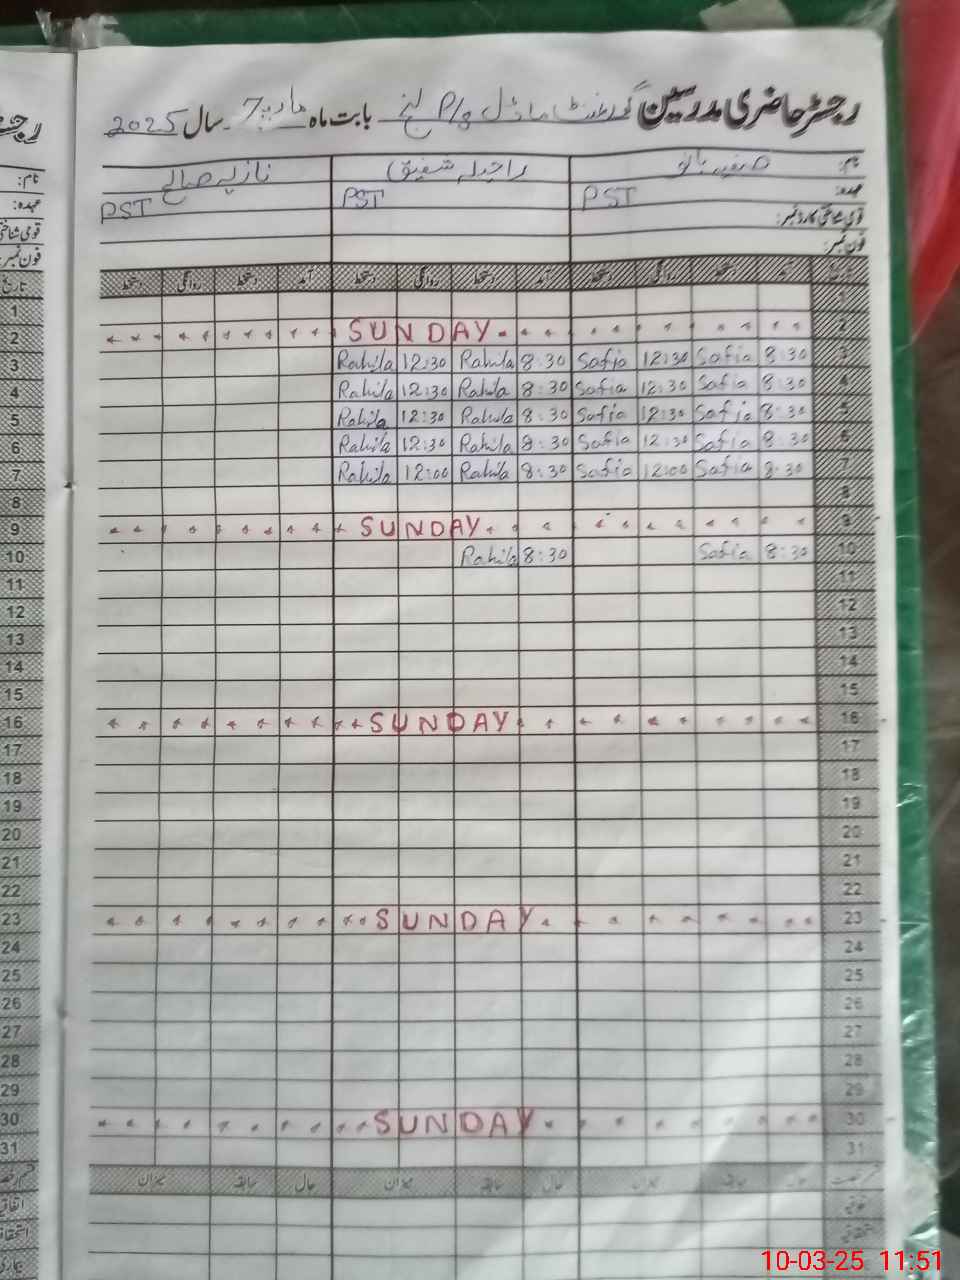 رجسٹر حاضری مدرسین گورنمنٹ ماڈل P/S بابت ماہ مارچ سال 2025
نام: صفیہ بانو راحیلہ شفیق نازیہ صالح
عہدہ: PST PST PST
قومی شناختی کارڈ نمبر:
فون نمبر:
تاریخ آمد دستخط روانگی دستخط آمد دستخط روانگی دستخط آمد دستخط روانگی دستخط
1 1
2 SUNDAY 2
3 Rahila 12:30 Rahila 8:30 Safia 12:30 Safia 8:30 3
4 Rahila 12:30 Rahila 8:30 Safia 12:30 Safia 8:30 4
5 Rahila 12:30 Rahila 8:30 Safia 12:30 Safia 8:30 5
6 Rahila 12:30 Rahila 8:30 Safia 12:30 Safia 8:30 6
7 Rahila 12:00 Rahila 8:30 Safia 12:00 Safia 8:30 7
8 8
9 SUNDAY 9
10 Rahila 8:30 Safia 8:30 10
11 11
12 12
13 13
14 14
15 15
16 SUNDAY 16
17 17
18 18
19 19
20 20
21 21
22 22
23 SUNDAY 23
24 24
25 25
26 26
27 27
28 28
29 29
30 SUNDAY 30
31 31
حال سابقہ میزان حال سابقہ میزان حال سابقہ میزان
اتفاقی
10-03-25 11:51